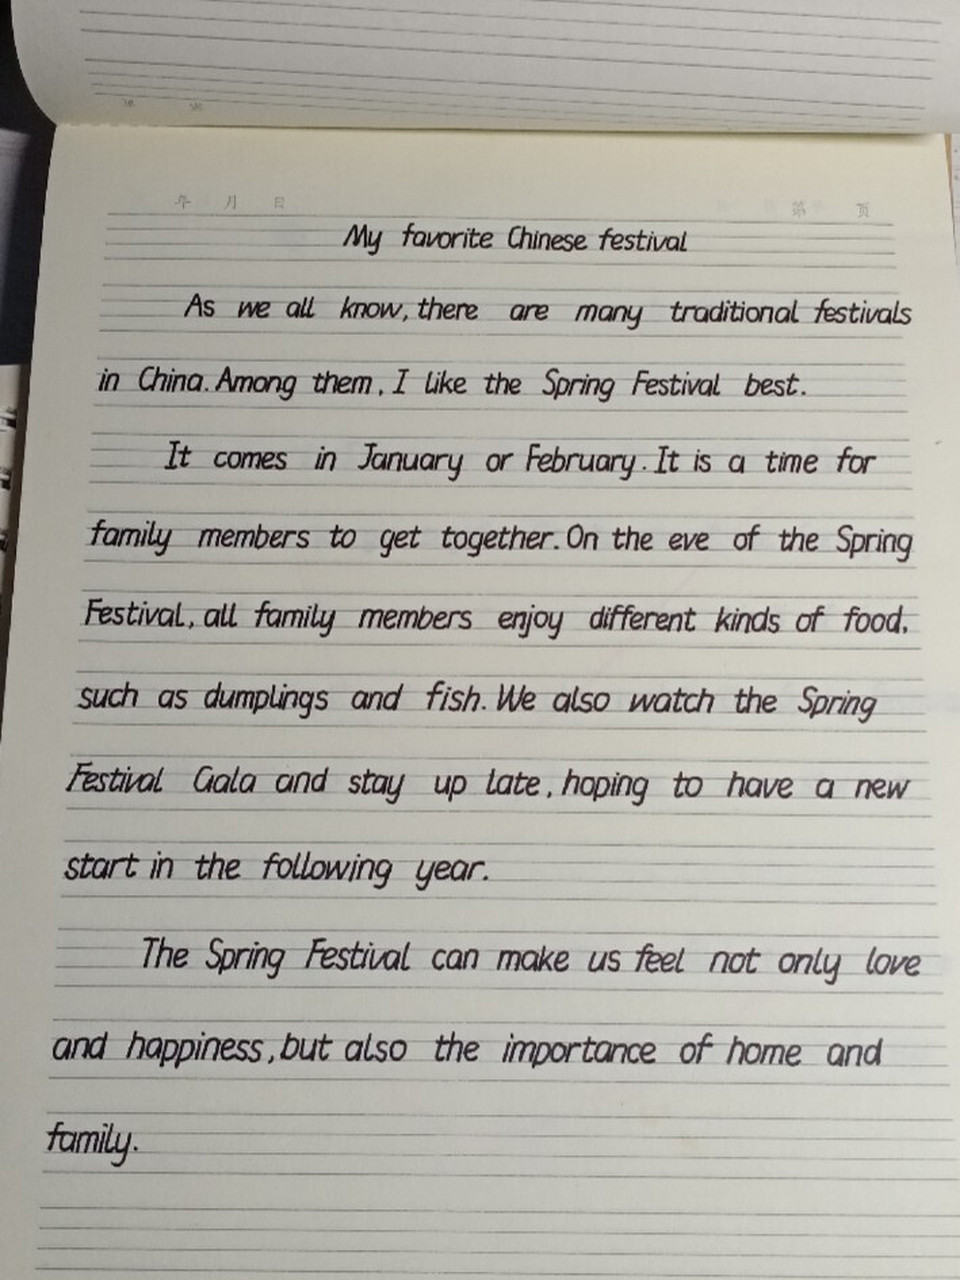 年 月 日 第 页
My favorite Chinese festival
As we all know, there are many traditional festivals
in China. Among them, I like the Spring Festival best.
It comes in January or February. It is a time for
family members to get together. On the eve of the Spring
Festival, all family members enjoy different kinds of food,
such as dumplings and fish. We also watch the Spring
Festival Gala and stay up late, hoping to have a new
start in the following year.
The Spring Festival can make us feel not only love
and happiness, but also the importance of home and
family.